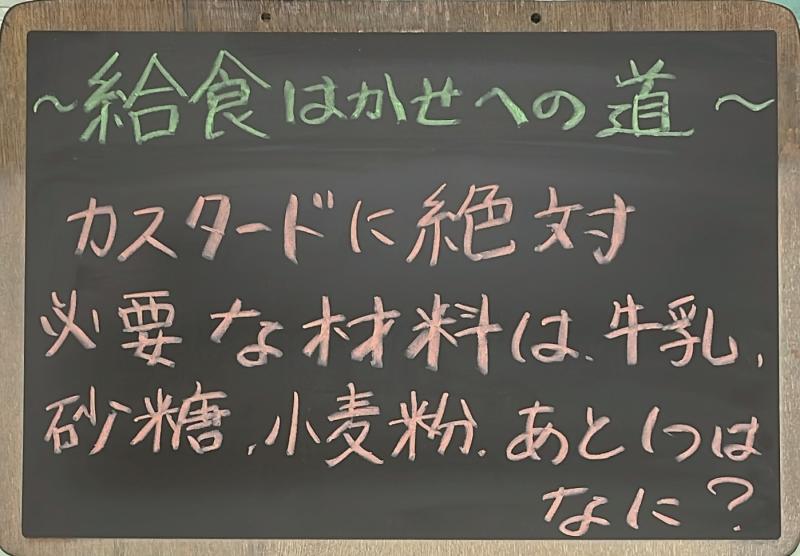 ～給食はかせへの道～
カスタードに絶対
必要な材料は、牛乳、
砂糖、小麦粉、あと1つは
なに？